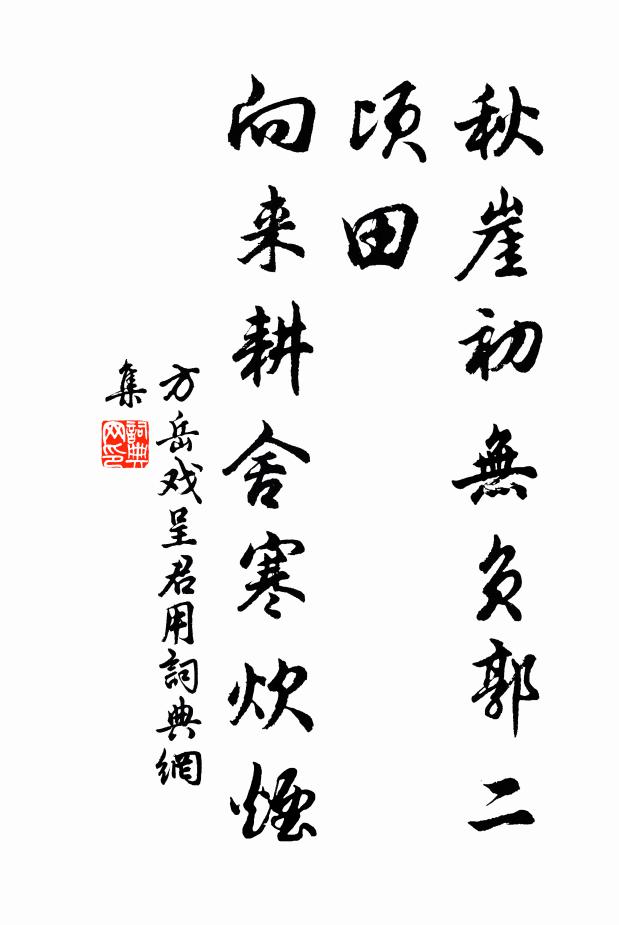 秋崖初無負郭二
頃田
向来耕舍寒炊煙
方岳戏呈君用詞典網
集
詞典
网印